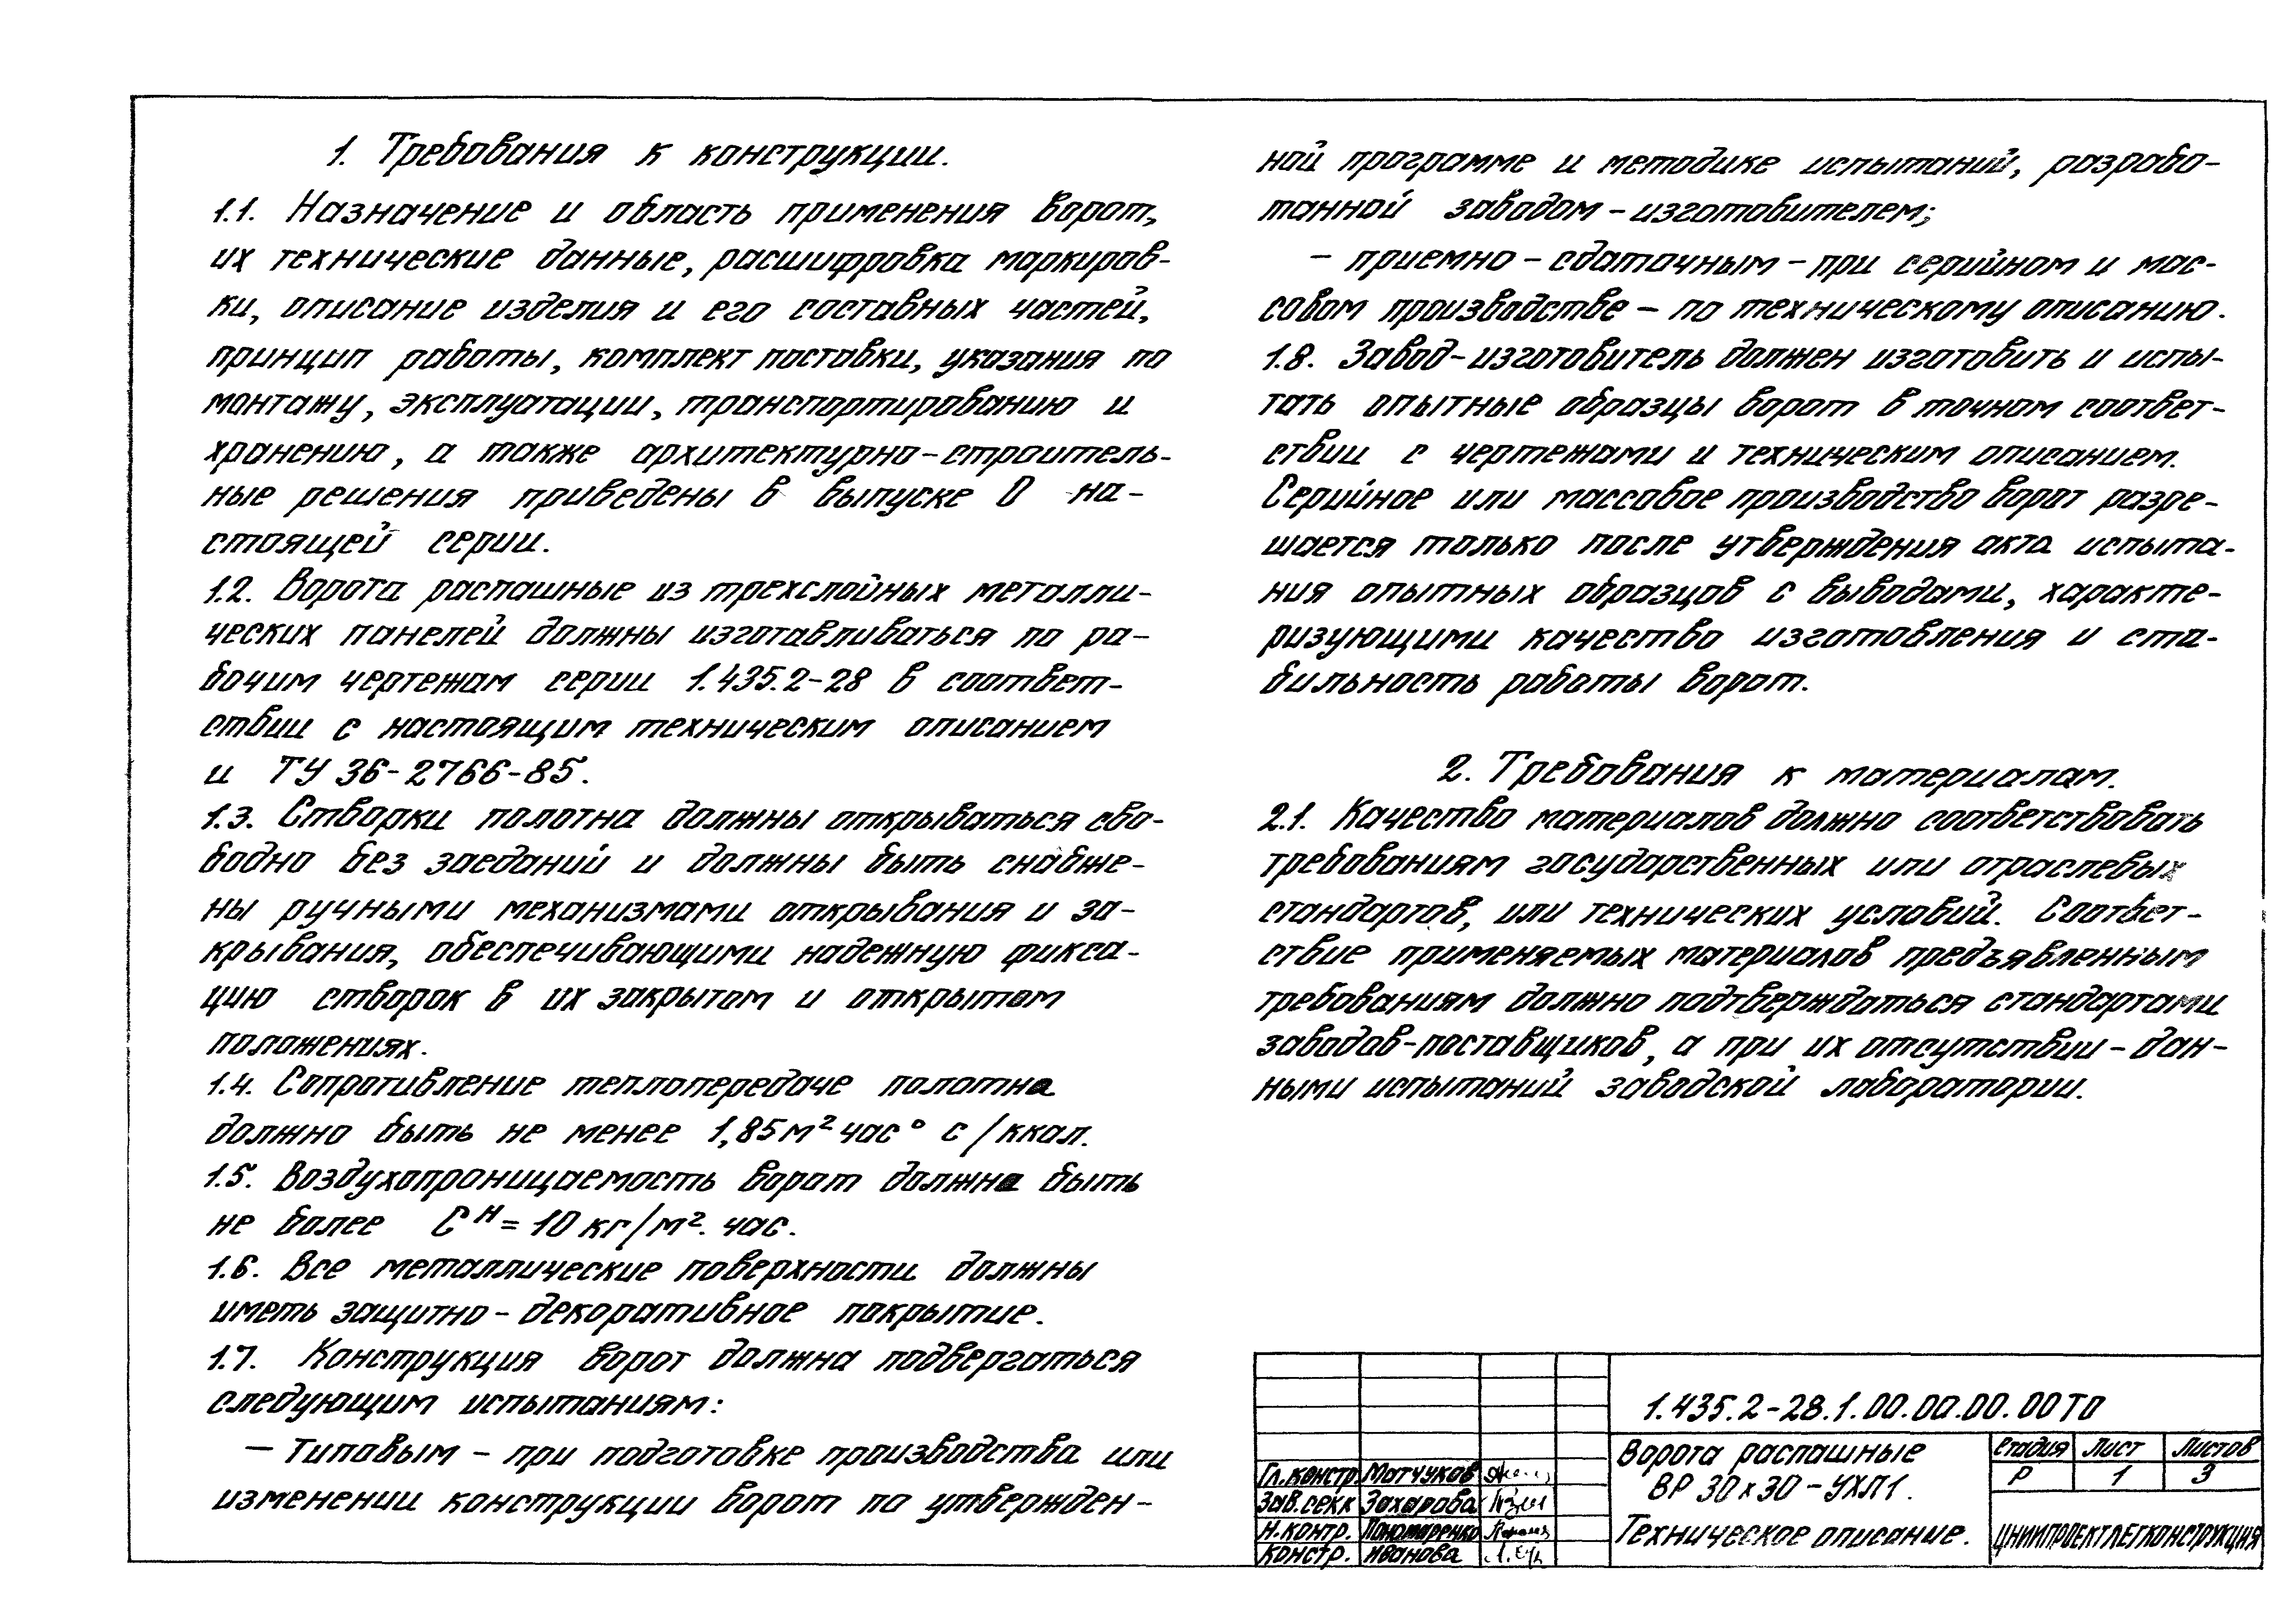 1. Требования к конструкции.
1.1. Назначение и область применения ворот,
их технические данные, расшифровка маркиров-
ки, описание изделия и его составных частей,
принцип работы, комплект поставки, указания по
монтажу, эксплуатации, транспортированию и
хранению, а также архитектурно-строитель-
ные решения приведены в выпуске 0 на-
стоящей серии.
1.2. Ворота распашные из трехслойных металли-
ческих панелей должны изготавливаться по ра-
бочим чертежам серии 1.435.2-28 в соответ-
ствии с настоящим техническим описанием
и ТУ 36-2766-85.
1.3. Створки полотна должны открываться сво-
бодно без заеданий и должны быть снабже-
ны ручными механизмами открывания и за-
крывания, обеспечивающими надежную фикса-
цию створок в их закрытом и открытом
положениях.
1.4. Сопротивление теплопередаче полотна
должно быть не менее 1,85 м² час° с/ккал.
1.5. Воздухопроницаемость ворот должна быть
не более Cᴴ = 10 кг/м². час.
1.6. Все металлические поверхности должны
иметь защитно-декоративное покрытие.
1.7. Конструкция ворот должна подвергаться
следующим испытаниям:
– типовым – при подготовке производства или
изменении конструкции ворот по утвержден-
ной программе и методике испытаний, разрабо-
танной заводом-изготовителем;
– приемно-сдаточным – при серийном и мас-
совом производстве – по техническому описанию.
1.8. Завод-изготовитель должен изготовить и испы-
тать опытные образцы ворот в точном соответ-
ствии с чертежами и техническим описанием.
Серийное или массовое производство ворот разре-
шается только после утверждения акта испыта-
ния опытных образцов с выводами, характе-
ризующими качество изготовления и ста-
бильность работы ворот.
2. Требования к материалам.
2.1. Качество материалов должно соответствовать
требованиям государственных или отраслевых
стандартов, или технических условий. Соответ-
ствие применяемых материалов предъявленным
требованиям должно подтверждаться стандартами
заводов-поставщиков, а при их отсутствии – дан-
ными испытаний заводской лаборатории.
1.435.2-28.1.00.00.00.00ТО
Гл.констр. Матчуков
Зав.секк Захарова
Н.контр. Пономаренко
Констр. Иванова
Ворота распашные
ВР 30х30-УХЛ1.
Техническое описание.
Стадия Лист Листов
Р 1 3
ЦНИИПРОЕКТЛЕГКОНСТРУКЦИЯ